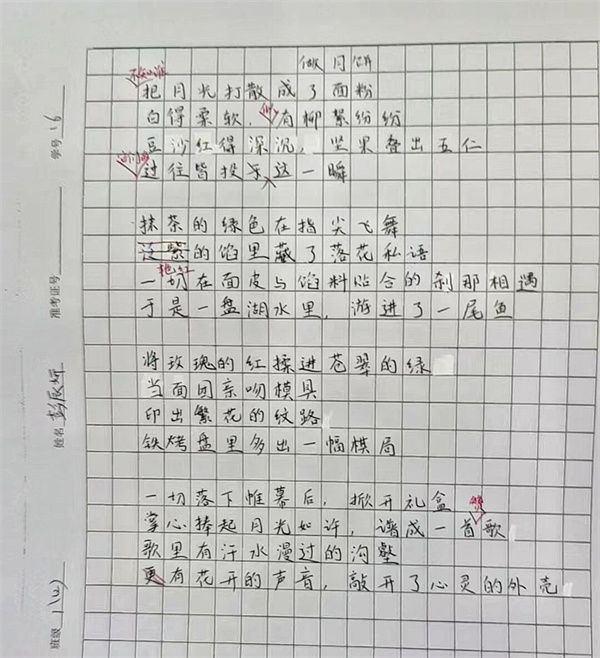 做月饼
把月光打散成了面粉
白得柔软，有柳絮纷纷
豆沙红得深沉，坚果叠出五仁
过往皆投于这一瞬
抹茶的绿色在指尖飞舞
泛紫的馅里藏了落花私语
艳红
一切在面皮与馅料贴合的刹那相遇
于是一盘湖水里，游进了一尾鱼
将玫瑰的红揉进苍翠的绿
当面团亲吻模具
印出繁花的纹路
铁烤盘里多出一幅棋局
一切落下帷幕后，掀开礼盒
掌心捧起月光如许，谱成一首歌
歌里有汗水漫过的沟壑
更有花开的声音，敲开了心灵的外壳
学号 16
准考证号
姓名
班级